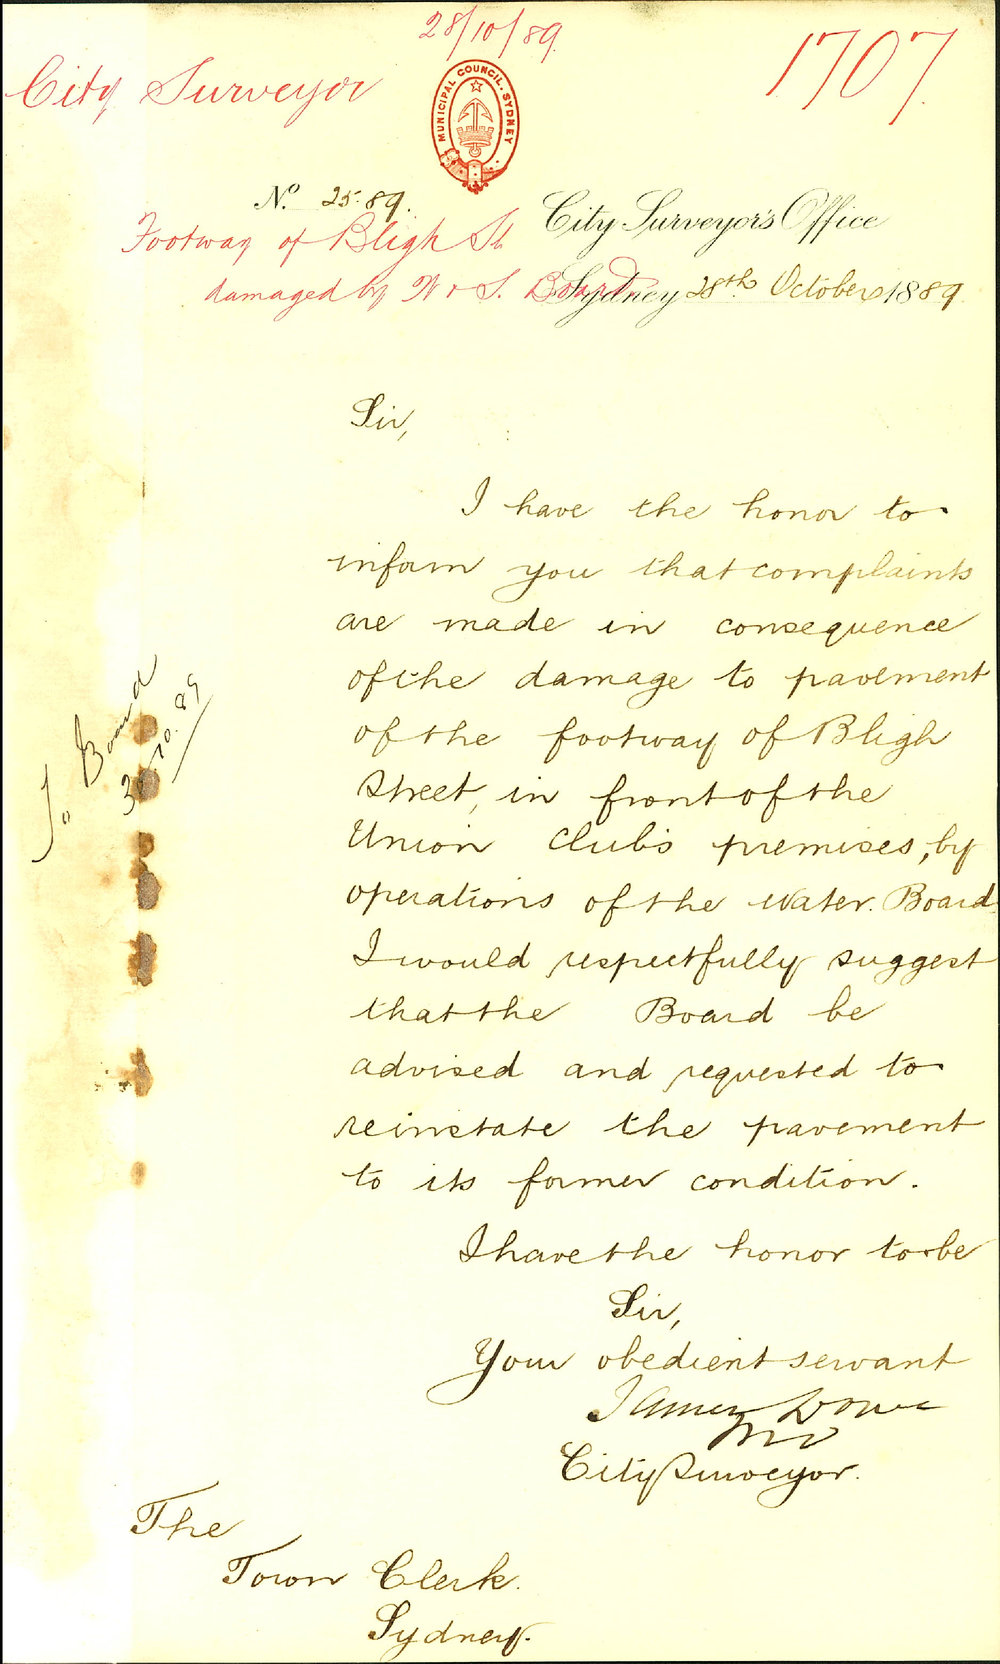 28/10/89
City Surveyor
1707
MUNICIPAL COUNCIL. SYDNEY
No. 25.89.
City Surveyor's Office
Footway of Bligh St
damaged by W & S. Board
Sydney 28th October 1889
Sir,
I have the honor to
inform you that complaints
are made in consequence
of the damage to pavement
of the footway of Bligh
Street, in front of the
Union Club's premises, by
operations of the Water Board.
I would respectfully suggest
that the Board be
advised and requested to
reinstate the pavement
to its former condition.
I have the honor to be
Sir,
Your obedient servant
James
City Surveyor.
The
Town Clerk.
Sydney.
To Board
10.89